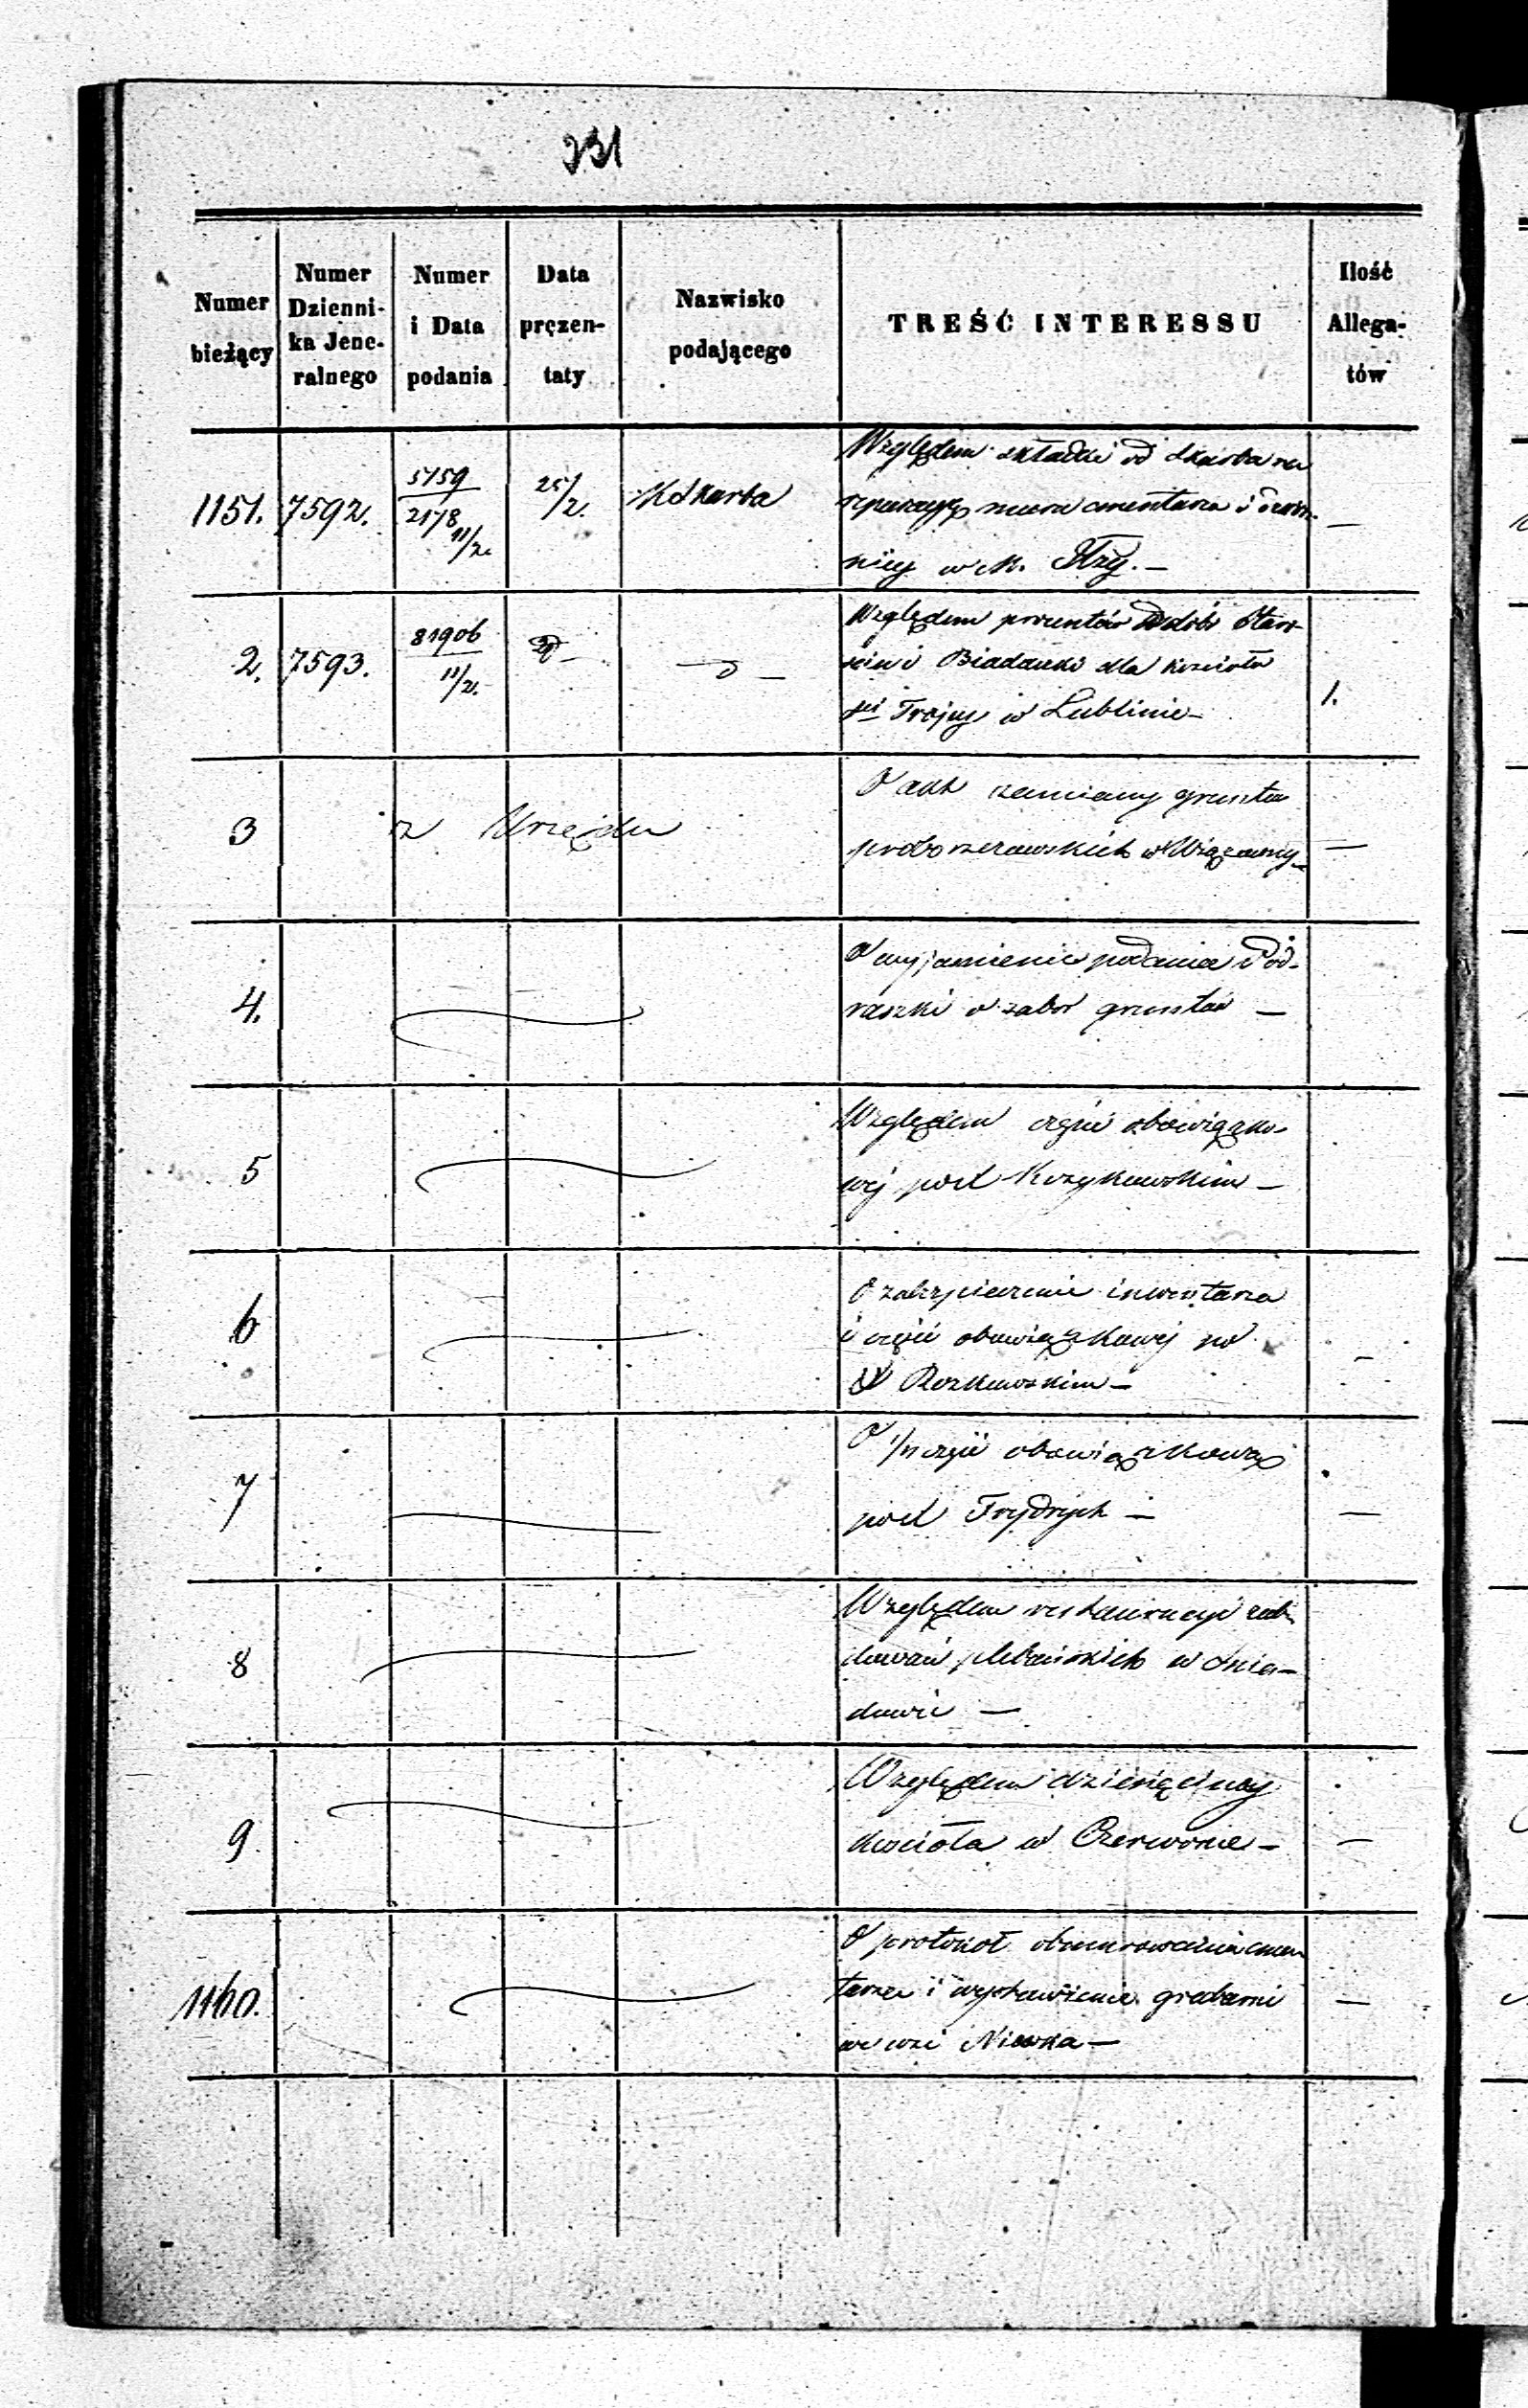 231
Numer bieżący
Numer Dzienni-ka Jene-ralnego
Numer i Data podania
Data pręzen-taty
Nazwisko podającego
TREŚĆ INTERESSU
Ilość Allega-tów
1151. 7592. 5759 2178 11/2. 25/2. K Skarba
Względem składki od Skarba na
reparacyę muru cmentarza i
w M. —
2. 7593. 81906 11/2. — 1.
Względem procentów z dóbr
i Biadaczki dla kościoła
Śtej Trójcy w Lublinie —
3 z Urzędu
O akt zamiany gruntu
proboszczowskich w Wiązowny —
4.
O wyjaśnienie podania
o zabór gruntów —
5
Względem części obowiązko-
wej pod Krzykowskim —
6
O zabezpieczenie inwentarza
i części obowiązkowej po
X Roszkowskim —
7
O części obowiązkową
pod Frydrych —
8
Względem restauracyi zabu
dowań plebańskich w Śnia-
dowie —
9
Względem dziesięciny
kościoła w Czerwonce —
1160.
O protokół obmurowania cmen
tarza i wystawienie grabarni
we wsi Niwka —